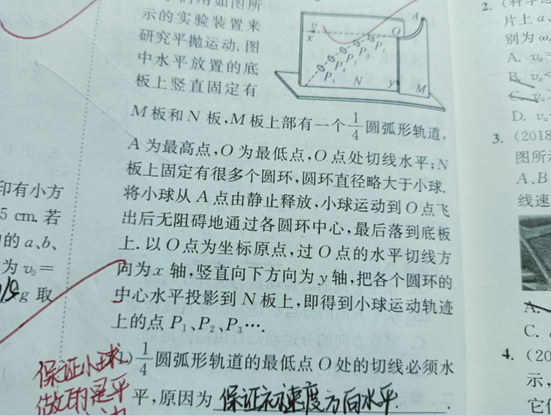 们用如图所
示的实验装置来
研究平抛运动.图
中水平放置的底
板上竖直固定有
M板和N板,M板上部有一个1/4圆弧形轨道,
A为最高点,O为最低点,O点处切线水平;N
板上固定有很多个圆环,圆环直径略大于小球.
将小球从A点由静止释放,小球运动到O点飞
出后无阻碍地通过各圆环中心,最后落到底板
上.以O点为坐标原点,过O点的水平切线方
向为x轴,竖直向下方向为y轴,把各个圆环的
中心水平投影到N板上,即得到小球运动轨迹
上的点P₁、P₂、P₃….
)1/4圆弧形轨道的最低点O处的切线必须水
平,原因为 保证初速度方向水平
保证小球
做的是平
A
O
x
y
P₁
P₂
P₃
N
M
印有小方
5 cm.若
中的a、b、
为v₀=
g取
2.
片上a
别为ω
A. v₀
B. v₀
C. v₀
D. v₀
3. (2018
图所
A、B
线速
A.
C.
4. (20
示,
它